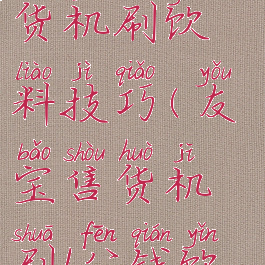 货机刷饮
liào jì qiǎo yǒu
料技巧(友
bǎo shòu huò jī
宝售货机
shuā fēn qián yǐn
刷1分钱饮